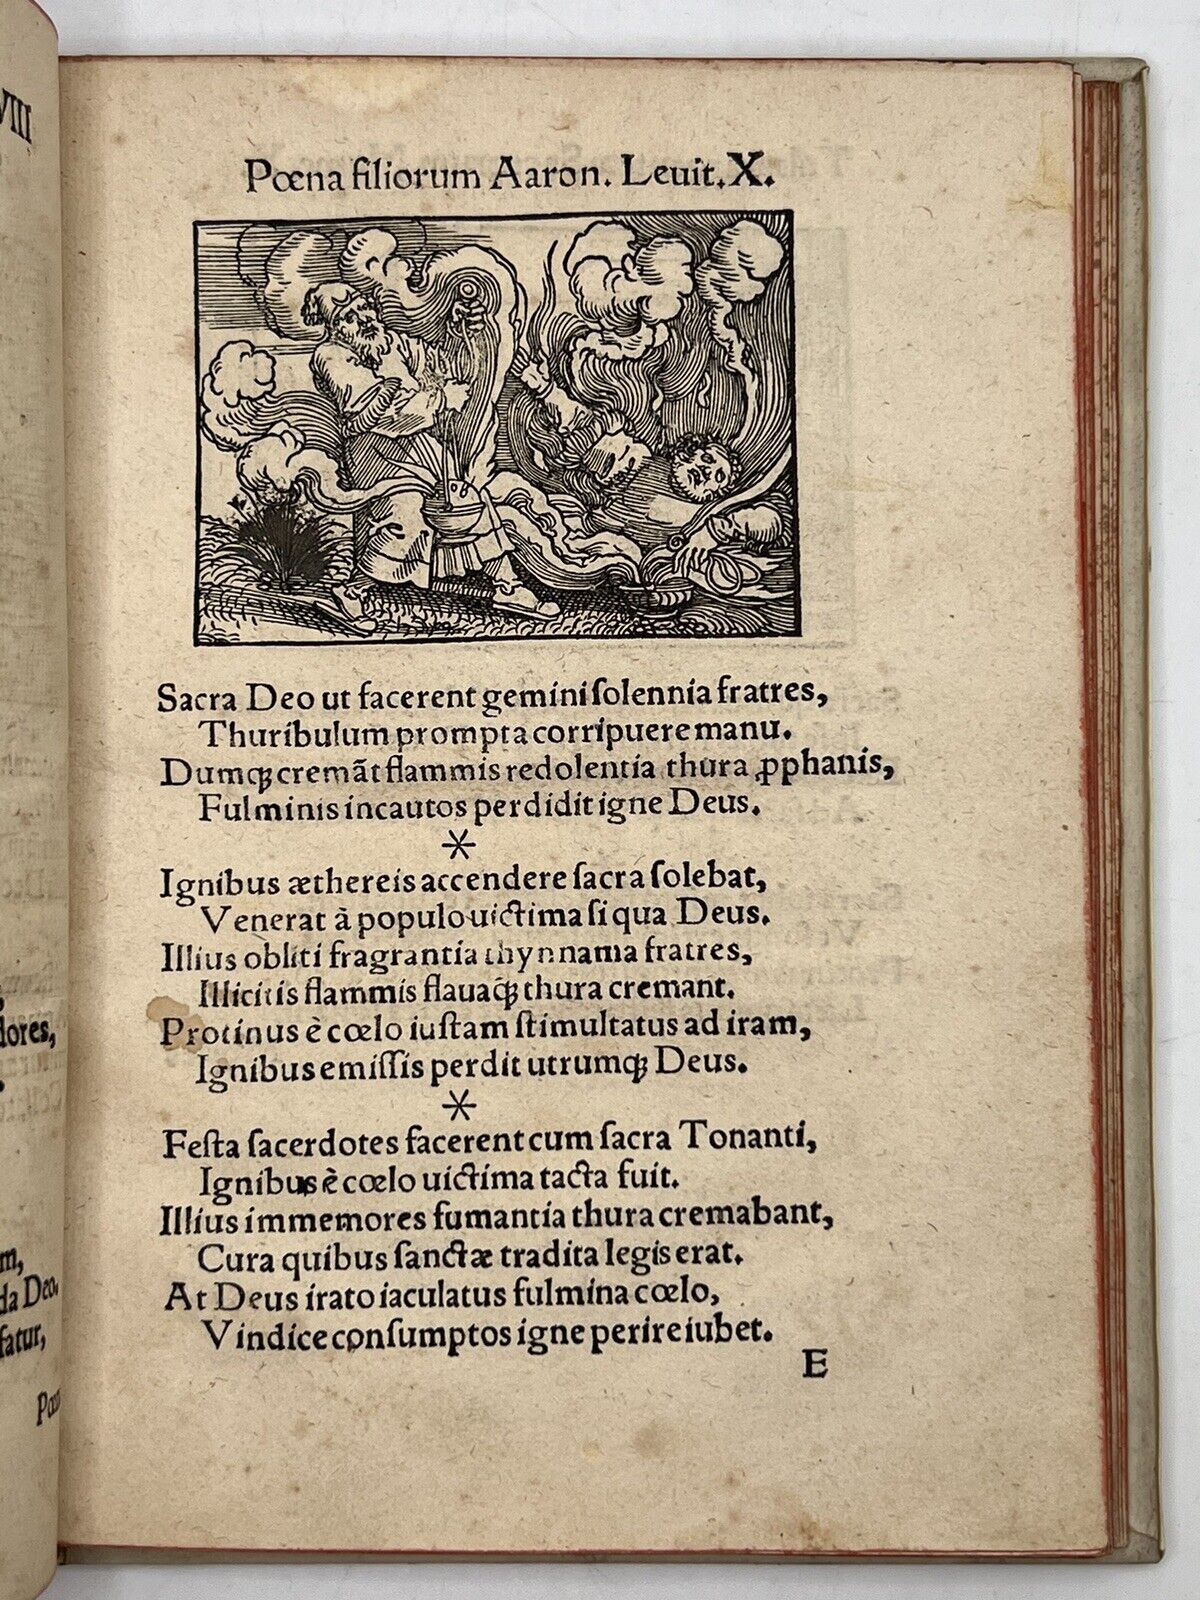 VIII
Pœna filiorum Aaron. Leuit. X.
Sacra Deo ut facerent gemini ſolennia fratres,
Thuribulum prompta corripuere manu.
Dumqꝫ cremãt flammis redolentia thura ꝓphanis,
Fulminis incautos perdidit igne Deus.
*
Ignibus æthereis accendere ſacra ſolebat,
Venerat à populo uictima ſi qua Deus.
Illius obliti fragrantia thynnama fratres,
Illicitis flammis flauaqꝫ thura cremant.
Protinus è cœlo iuſtam ſtimultatus ad iram,
Ignibus emiſſis perdit utrumqꝫ Deus.
*
Feſta ſacerdotes facerent cum ſacra Tonanti,
Ignibus è cœlo uictima tacta fuit.
Illius immemores fumantia thura cremabant,
Cura quibus ſanctæ tradita legis erat.
At Deus irato iaculatus fulmina cœlo,
Vindice conſumptos igne perire iubet.
E
dores,
m,
da Deo.
fatur,
Pœn